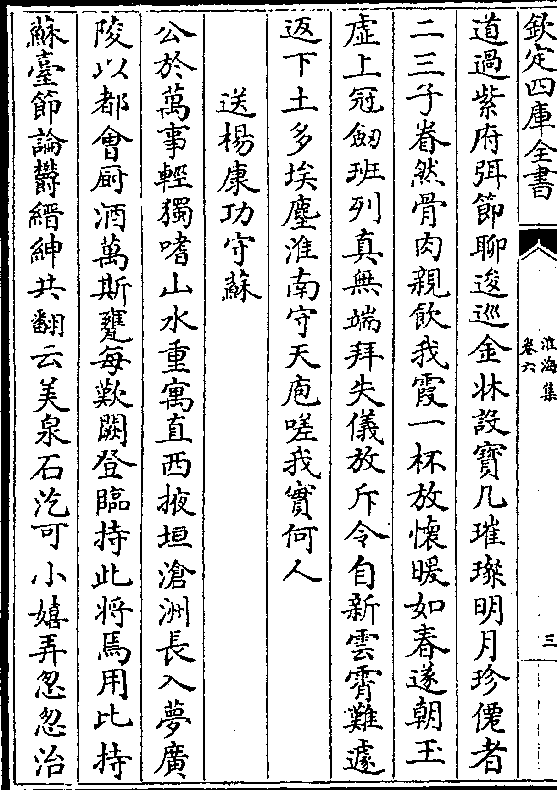 欽定四庫全書
淮海集
卷六
三
道過紫府弭節聊逡巡金牀設寶几璀璨明月珍僊者
二三子眷然骨肉親飲我霞一杯放懷暖如春遂朝玉
虛上冠劒班列真無端拜失儀放斥令自新雲霄難遽
返下土多埃塵淮南守天庖嗟我實何人
送楊康功守蘇
公於萬事輕獨嗜山水重寓直西掖垣滄洲長入夢廣
陵以都會厨酒萬斯甕每歎闕登臨持此將焉用比持
蘇臺節論欝縉紳共翻云美泉石汔可小嬉弄忽忽治